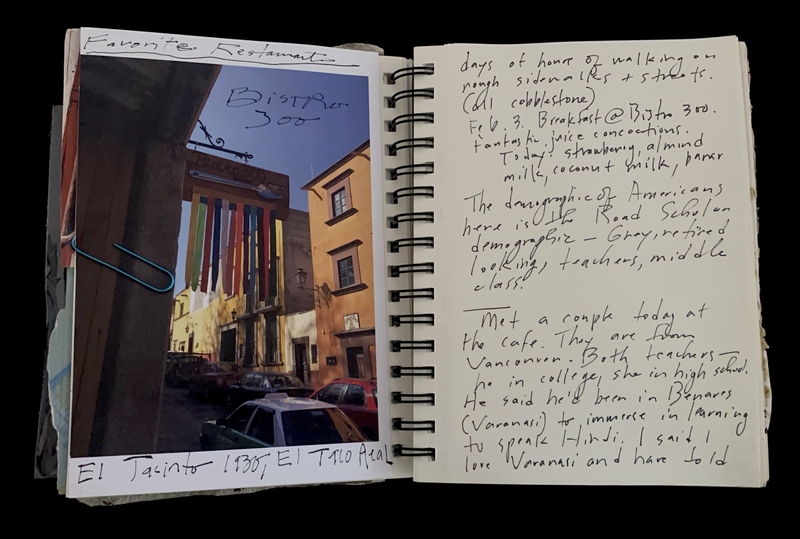 Favorite Restaurants
Bistro
300
El Jacinto 1930, El Taco Real
days of hours of walking on
rough sidewalks + streets.
(all cobblestone)
Feb. 3. Breakfast @ Bistro 300.
Fantastic juice concoctions.
Today: strawberry, almond
milk, coconut milk,
The demographic of Americans
here is the Road Scholar
demographic – Grey, retired
looking, teachers, middle
class.
Met a couple today at
the cafe. They are from
Vancouver. Both teachers –
he in college, she in high school.
He said he'd been in Benares
(Varanasi) to immerse in learning
to speak Hindi. I said I
love Varanasi and have told